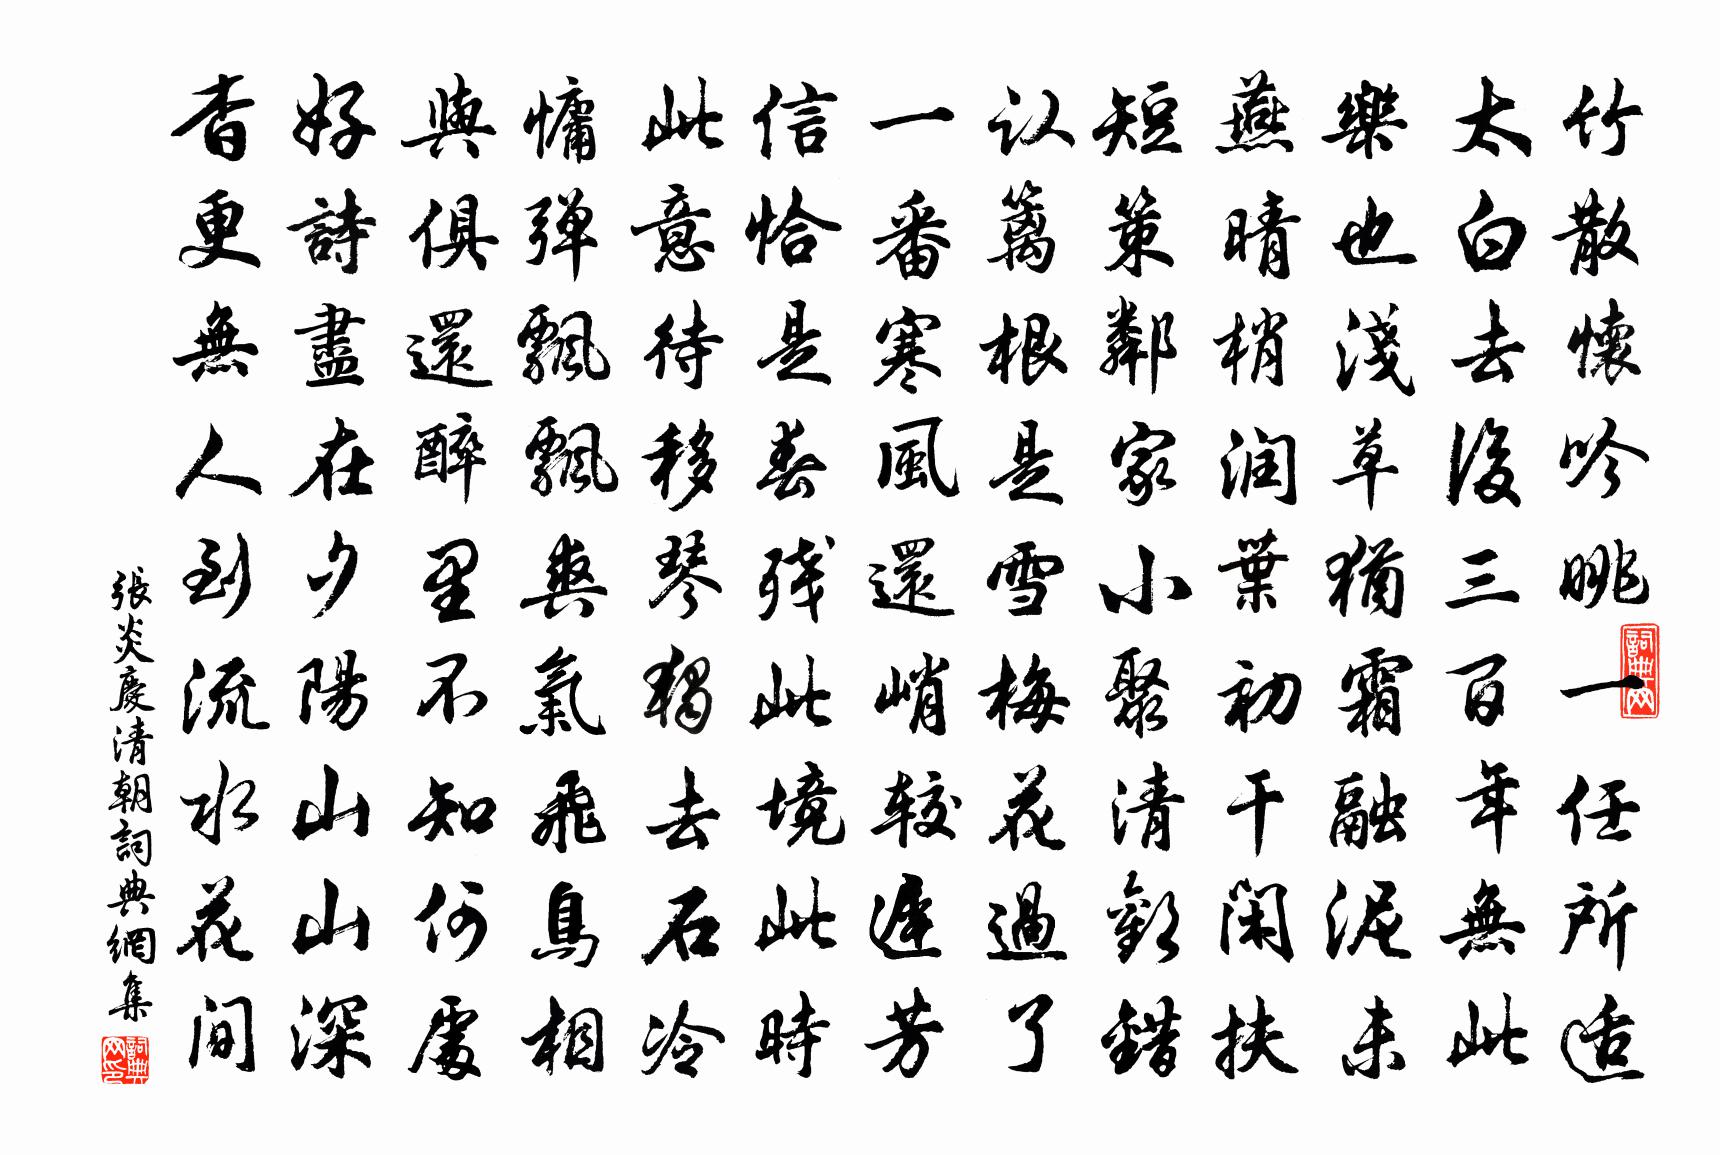 竹散懷吟眺一任所适
太白去後三百年無此
樂也淺草猶霜融泥未
燕晴梢润葉初干闲扶
短策鄰家小聚清歡錯
认篱根是雪梅花過了
一番寒風還峭较遲芳
信恰是春残此境此時
此意待移琴獨去石冷
慵弹飄飄爽氣飛鳥相
與俱還醉里不知何處
好詩盡在夕陽山山深
杳更無人到流水花间
張炎慶清朝詞典網集
詞典网
詞典网印